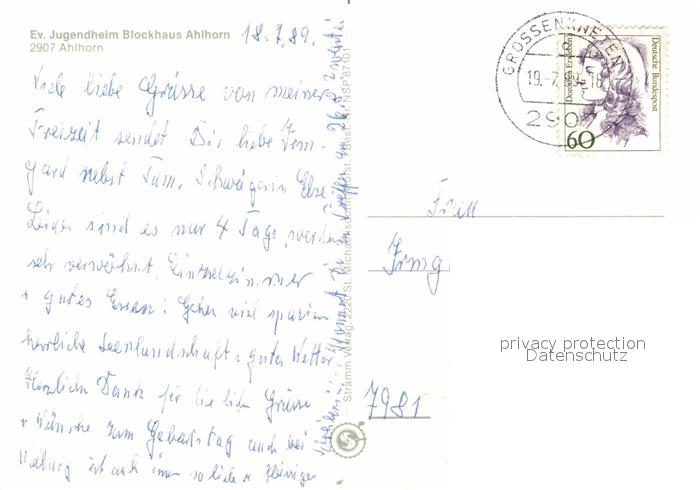 Ev. Jugendheim Blockhaus Ahlhorn
2907 Ahlhorn
18.7.89.
Viele liebe Grüsse von meiner
Freizeit sendet Dir liebe Irm-
gard nebst Fam. Schwägerin Else
Leider sind es nur 4 Tage, werden
sehr verwöhnt, Einzelzimmer
u gutes Essen! Gehen viel spazieren
herrliche Seenlandschaft u gutes Wetter
Herzlichen Dank für die lieben Grüsse
u Wünsche zum Geburtstag auch bei
ist auch immer so lieb u
Kommst Du zu Treffen am 26.8
Stramm Verlag, 2220 St. Michaelisdonn/Holst. Best. NSP 87101
GROSSENKNETEN
19.-7.89-18
290
Dorothea Erxleben
Deutsche Bundespost
60
Frau
Irmg
7981
privacy protection
Datenschutz